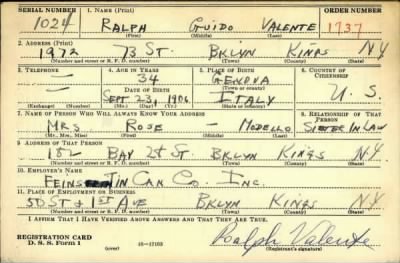 SERIAL NUMBER 1. NAME (Print) ORDER NUMBER
1024 RALPH GUIDO VALENTE 1737
(First) (Middle) (Last)
2. ADDRESS (Print)
1972 73 ST. BKLYN KINGS NY
(Number and street or R. F. D. number) (Town) (County) (State)
3. TELEPHONE 4. AGE IN YEARS 5. PLACE OF BIRTH 6. COUNTRY OF CITIZENSHIP
— 34 GENOVA
DATE OF BIRTH (Town or county)
— SEPT 23, 1906 ITALY U. S
(Exchange) (Number) (Mo.) (Day) (Yr.) (State or country)
7. NAME OF PERSON WHO WILL ALWAYS KNOW YOUR ADDRESS 8. RELATIONSHIP OF THAT PERSON
MRS ROSE — MODELLO SISTER IN LAW
(Mr., Mrs., Miss) (First) (Middle) (Last)
9. ADDRESS OF THAT PERSON
BAY ST. BKLYN KINGS NY
(Number and street or R. F. D. number) (Town) (County) (State)
10. EMPLOYER'S NAME
TIN CAN CO. INC.
11. PLACE OF EMPLOYMENT OR BUSINESS
50 ST & 1ST AVE BKLYN KINGS NY
(Number and street or R. F. D. number) (Town) (County) (State)
I AFFIRM THAT I HAVE VERIFIED ABOVE ANSWERS AND THAT THEY ARE TRUE.
REGISTRATION CARD
D. S. S. Form 1 (over) 16—17105 Ralph Valente
(Registrant's signature)